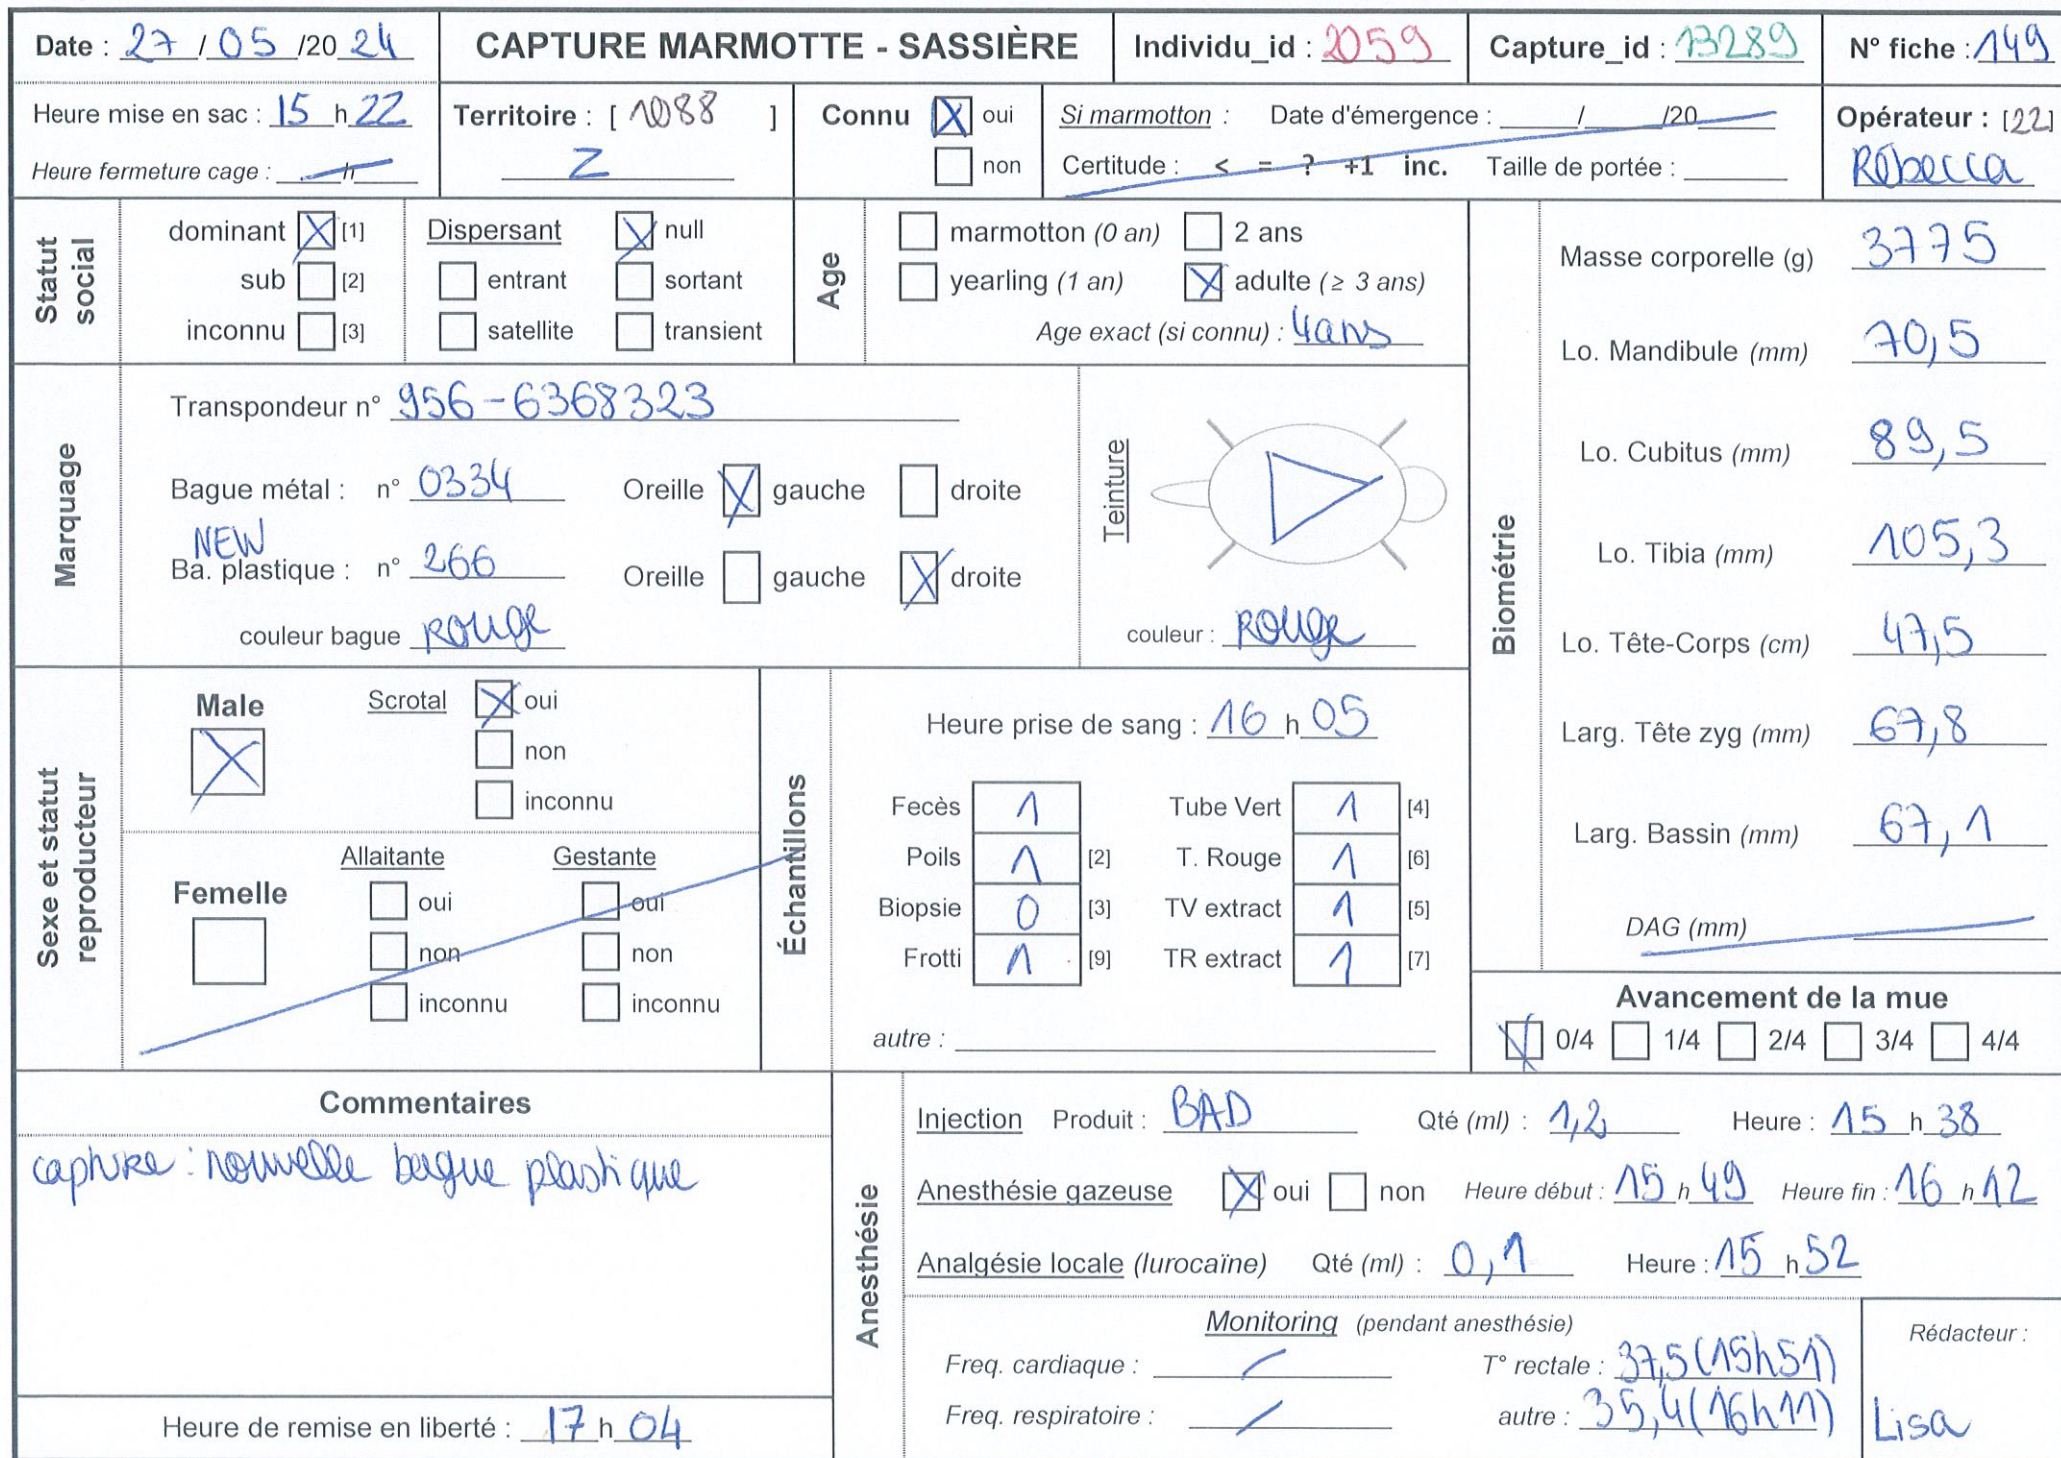 Date : 27 / 05 /20 24 CAPTURE MARMOTTE - SASSIÈRE Individu_id : 2059 Capture_id : 13289 N° fiche : 149
Heure mise en sac : 15 h 22
Heure fermeture cage : h
Territoire : [ 1088 ]
Z
Connu oui
non
Si marmotton : Date d'émergence : / /20
Certitude : < = ? +1 inc. Taille de portée :
Opérateur : [22]
Rébecca
Statut social
dominant [1]
sub [2]
inconnu [3]
Dispersant null
entrant sortant
satellite transient
Age
marmotton (0 an) 2 ans
yearling (1 an) adulte (≥ 3 ans)
Age exact (si connu) : 4ans
Marquage
Transpondeur n° 956-6368323
Bague métal : n° 0334 Oreille gauche droite
NEW
Ba. plastique : n° 266 Oreille gauche droite
couleur bague Rouge
Teinture
couleur : Rouge
Biométrie
Masse corporelle (g) 3775
Lo. Mandibule (mm) 70,5
Lo. Cubitus (mm) 89,5
Lo. Tibia (mm) 105,3
Lo. Tête-Corps (cm) 47,5
Larg. Tête zyg (mm) 67,8
Larg. Bassin (mm) 67,1
DAG (mm)
Sexe et statut reproducteur
Male
Scrotal oui
non
inconnu
Femelle
Allaitante Gestante
oui oui
non non
inconnu inconnu
Échantillons
Heure prise de sang : 16 h 05
Fecès 1 Tube Vert 1 [4]
Poils 1 [2] T. Rouge 1 [6]
Biopsie 0 [3] TV extract 1 [5]
Frotti 1 [9] TR extract 1 [7]
autre :
Avancement de la mue
0/4 1/4 2/4 3/4 4/4
Commentaires
capture : nouvelle bague plastique
Heure de remise en liberté : 17 h 04
Anesthésie
Injection Produit : BAD Qté (ml) : 1,2 Heure : 15 h 38
Anesthésie gazeuse oui non Heure début : 15 h 49 Heure fin : 16 h 12
Analgésie locale (lurocaïne) Qté (ml) : 0,1 Heure : 15 h 52
Monitoring (pendant anesthésie)
Freq. cardiaque : T° rectale : 37,5 (15h51)
Freq. respiratoire : autre : 35,4 (16h11)
Rédacteur :
Lisa